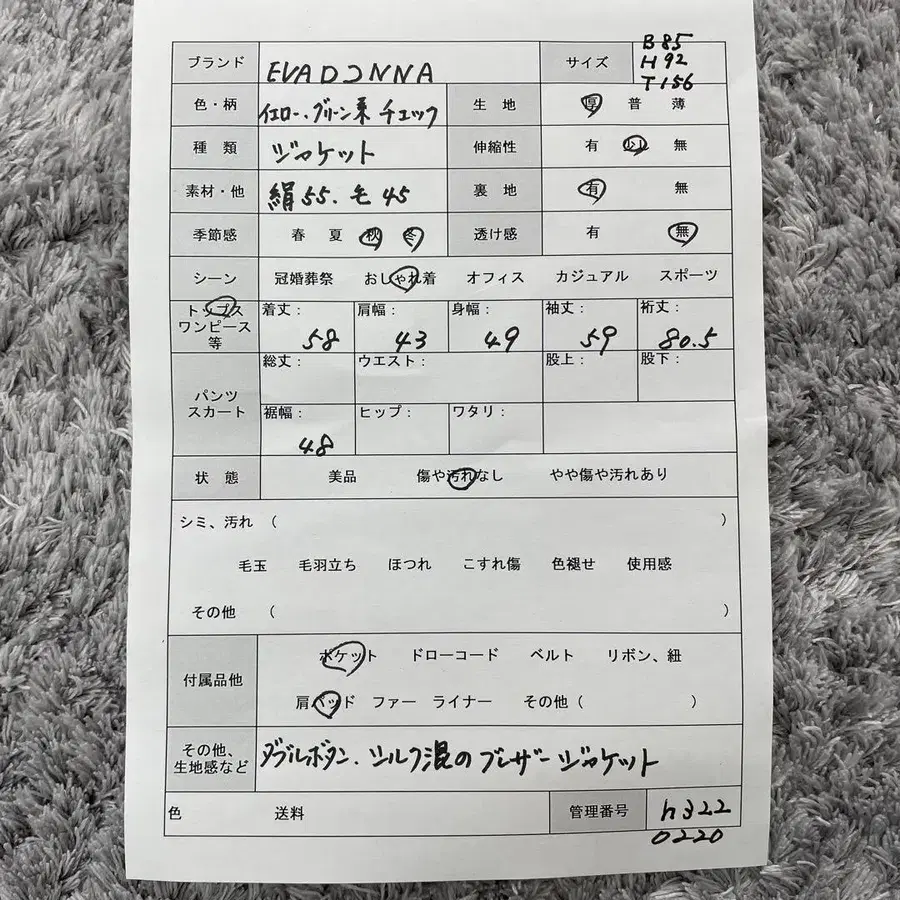 ブランド EVADONNA サイズ B85 H92 T156
色・柄 イエロー、グリーン系 チェック 生地 厚 普 薄
種類 ジャケット 伸縮性 有 少 無
素材・他 絹55、毛45 裏地 有 無
季節感 春 夏 秋 冬 透け感 有 無
シーン 冠婚葬祭 おしゃれ着 オフィス カジュアル スポーツ
トップス ワンピース 等 着丈: 58 肩幅: 43 身幅: 49 袖丈: 59 裄丈: 80.5
パンツ スカート 総丈: ウエスト: 股上: 股下:
裾幅: 48 ヒップ: ワタリ:
状態 美品 傷や汚れなし やや傷や汚れあり
シミ、汚れ ( )
毛玉 毛羽立ち ほつれ こすれ傷 色褪せ 使用感
その他 ( )
付属品他 ポケット ドローコード ベルト リボン、紐
肩パッド ファー ライナー その他( )
その他、生地感など ダブルボタン、シルク混のブレザージャケット
色 送料 管理番号 h322
0220